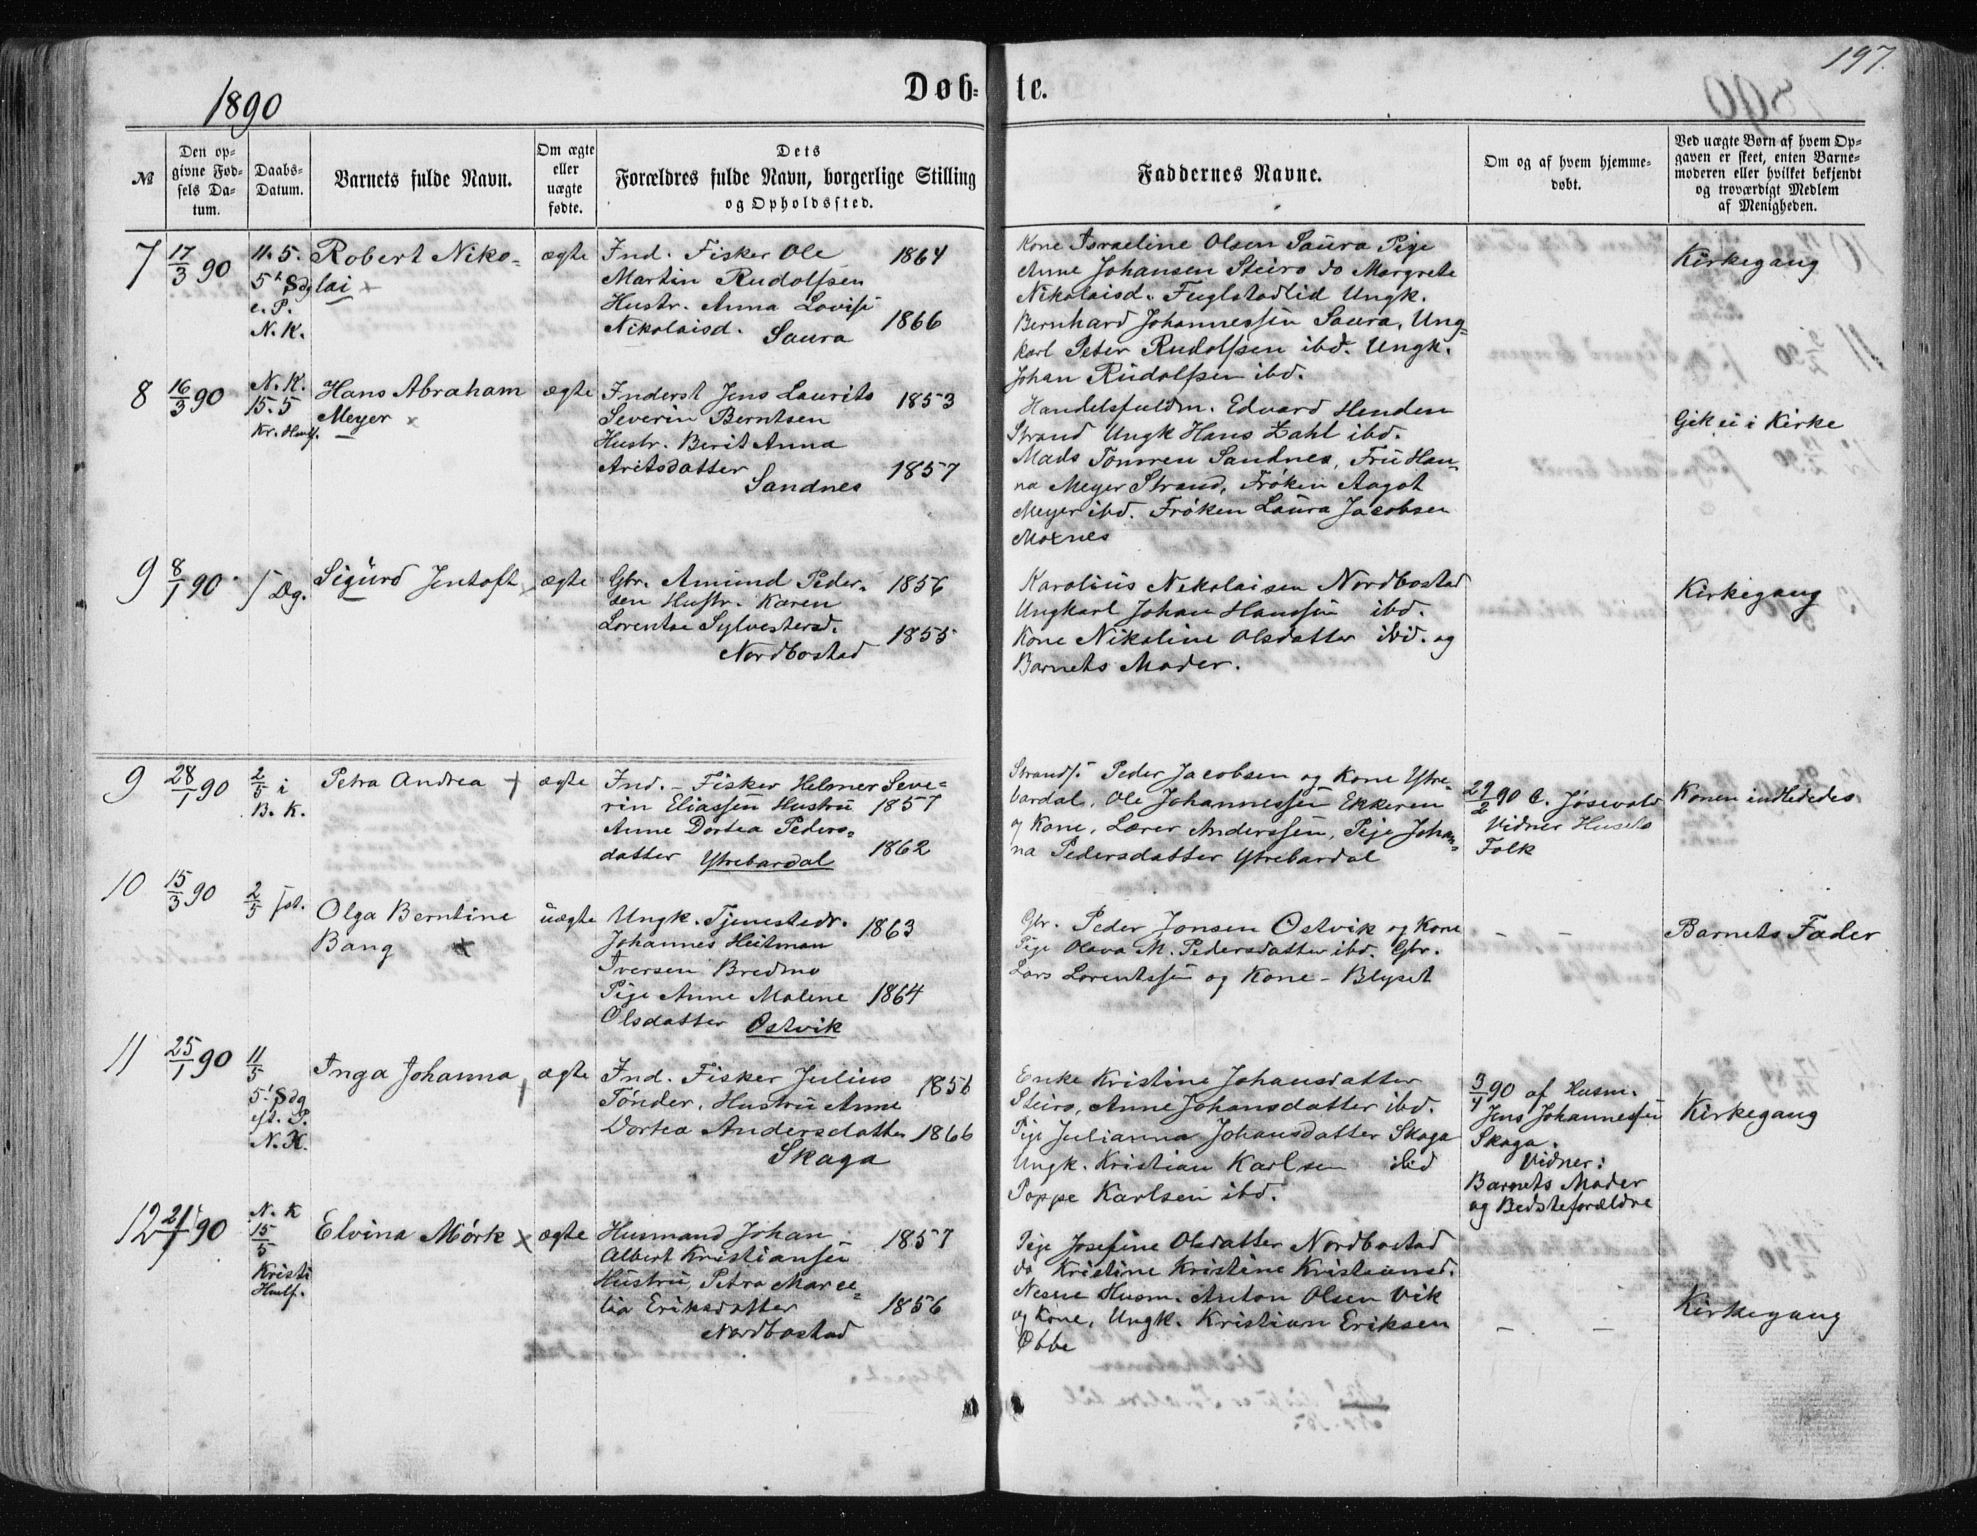 1890
Døb=te.
197.
№
Den op-
givne Fød-
sels Da-
tum.
Daabs-
Datum.
Barnets fulde Navn.
Om ægte
eller
uægte
fødte.
Dets
Forældres fulde Navn, borgerlige Stilling
og Opholdssted.
Faddernes Navne.
Om og af hvem hjemme-
døbt.
Ved uægte Børn af hvem Op-
gaven er skeet, enten Barne-
moderen eller hvilket bekjendt
og troværdigt Medlem
af Menigheden.
7
17/3 90
11. 5.
5' Sdg
e. P.
N. K.
Robert Niko-
lai
ægte
Ind. Fisker Ole 1864
Martin Rudolfsen
Hustr. Anna Lovise
Nikolaisd. 1866
Saura
Kone Israeline Olsen Saura Pige
Anne Johansen Steiro do Margrete
Nikolaisd. Fuglstadlid Ungk.
Bernhard Johannessen Saura, Ung-
karl Peter Rudolfsen ibd. Ungk.
Johan Rudolfsen ibd.
Kirkegang
8
16/3 90
N. K.
15. 5
Kr. Himlf.
Hans Abraham
Meyer x
ægte
Inderst Jens Laurits 1853
Severin Berntsen
Hustr. Berit Anna
Aritsdatter 1857
Sandnes
Handelsfuldm. Edvard Henden
Strand Ungk Hans Zahl ibd.
Mads Tomren Sandnes, Frü Han-
na Meyer Strand, Frøken Aagot
Meyer ibd. Frøken Laura Jacobsen
Moxnes
Gik ei i Kirke
9
8/1 90
Dg.
Sigurd Jentoft x
ægte
Gbr. Amund Peder- 1856
sen Hustr. Karen
Lorentse Sylvestersd. 1855
Nordbostad
Karolius Nikolaisen Nordbostad
Ungkarl Johan Hanssen ibd.
Kone Nikoline Olsdatter ibd. og
Barnets Moder.
Kirkegang
9
28/1 90
2/5 i
B. K.
Petra Andrea +
ægte
Ind. - Fisker Helmer Seve-
rin Eliassen Hustru 1857
Anne Dortea Peders-
datter Ytrebardal 1862
Strands. Peder Jacobsen og Kone Ytre-
bardal, Ole Johannessen Ekkeren
og Kone, Lærer Anderssen, Pige Johan-
na Pedersdatter Ytrebardal
29/2 90 C. Jøsevold
Vidner Husets
Folk
Konen indlededes
10
15/3 90
2/5
Olga Berntine
Bang x
uægte
Ungk. Tjenestedr. 1863
Johannes Heitman
Iversen Bredmo
Pige Anne Malene 1864
Olsdatter Østvik
Gbr. Peder Jonsen Østvik og Kone
Pige Olava M. Pedersdatter ibd. Gbr.
Lars Lorentssen og Kone - Blyset
- -
Barnets Fader
11
25/1 90
11/5
5' Sdg
eft. P.
N. K.
Inga Johanna
ægte
Ind. Fisker Julius 1856
Tönder, Hustru Anne
Dortea Andersdatter 1866
Skaga
Enke Kristine Johansdatter
Steiro, Anne Johansdatter ibd.
Pige Julianna Johansdatter Skaga
Ungk. Kristian Karlsen ibid
Poppe Karlsen ibd.
3/4 90 af Husm.
Jens Johannessen
Skaga.
Vidner:
Barnets Moder
og Bedsteforældre
Kirkegang
12
21/1 90
N. K
15/5
Kristi
Himlf.
Elvina Mørk x
ægte
Husmand Johan 1857
Albert Kristiansen
Hustru Petra Marce-
lia Eriksdatter 1856
Nordbostad
Pige Josefine Olsdatter Nordbostad
do Kristine Kristine Kristiansd.
Nesne Husm. Anton Olsen Vik
og Kone, Ungk. Kristian Eriksen
Øbbe
- -
Kirkegang